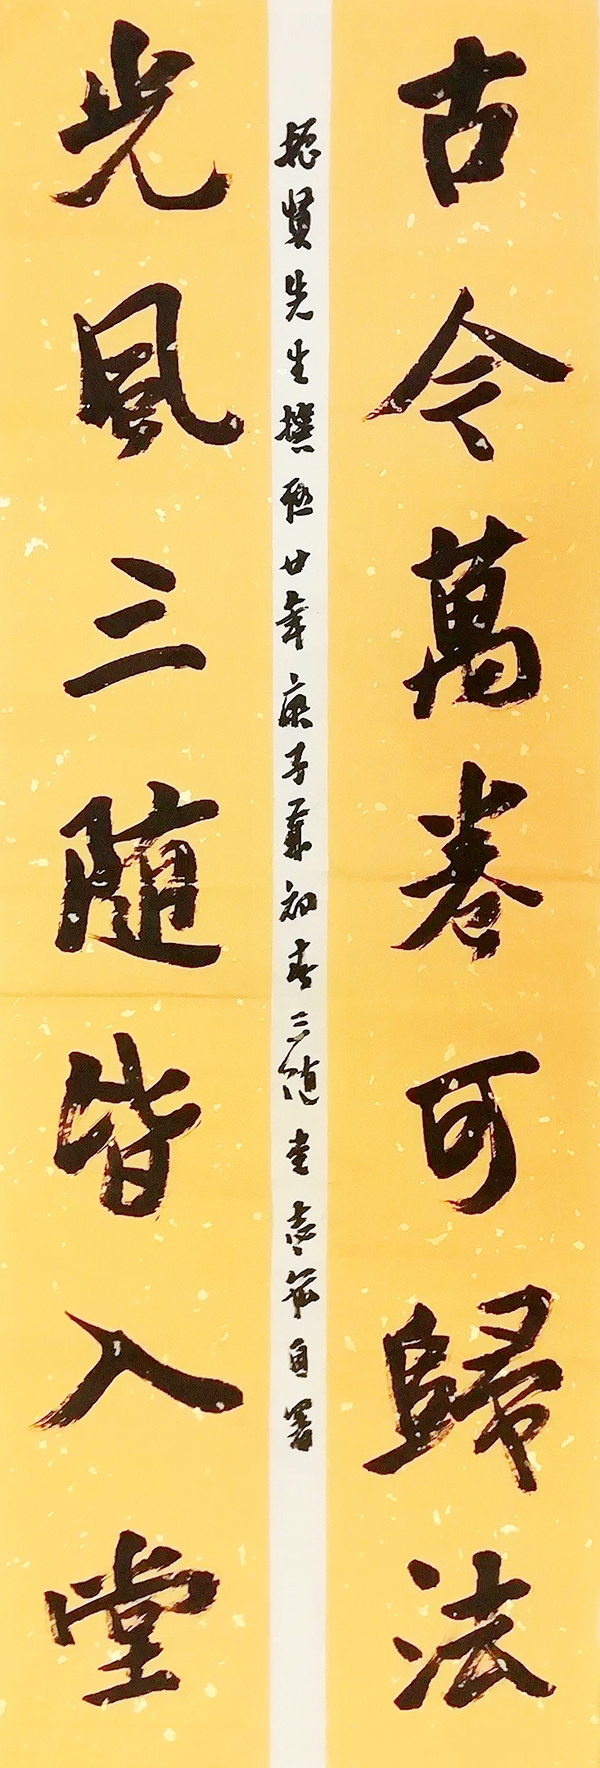 古今萬卷可歸法
振賢先生撰聯廿年庚子歲初春三隨堂志安自署
光風三随皆入堂